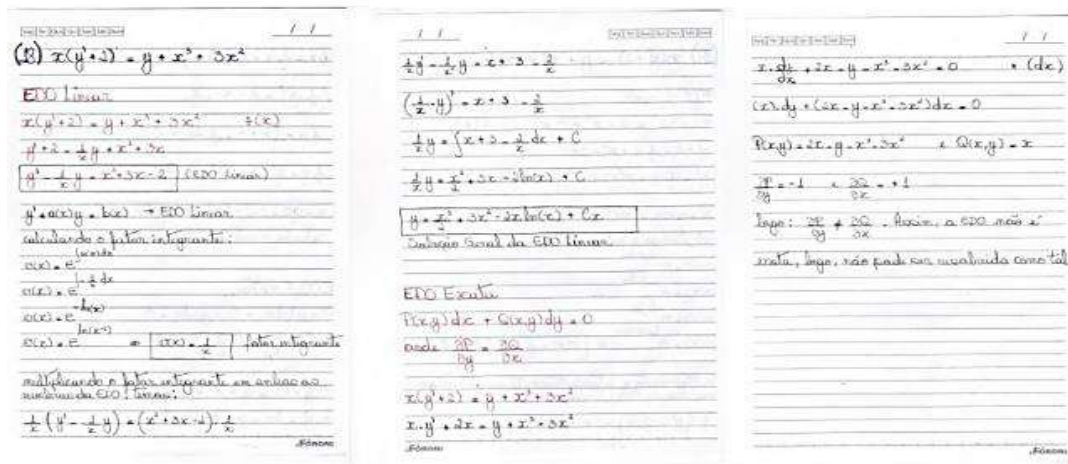 (13) x(y'+2) = y + x³ + 3x²
EDO Linear
x(y'+2) = y + x³ + 3x² ÷(x)
y' + 2 = 1/x y + x² + 3x
y' - 1/x y = x² + 3x - 2 (EDO linear)
y' + a(x)y = b(x) → EDO Linear
calculando o fator integrante:
v(x) = e^∫a(x)dx
v(x) = e^∫-1/x dx
v(x) = e^-ln(x)
v(x) = e^ln(x⁻¹) ⇒ v(x) = 1/x fator integrante
multiplicando o fator integrante em ambos os
da EDO linear:
1/x (y' - 1/x y) = (x² + 3x - 2) · 1/x
1/x y' - 1/x² y = x + 3 - 2/x
(1/x · y)' = x + 3 - 2/x
1/x y = ∫x + 3 - 2/x dx + C
1/x y = x²/2 + 3x - 2ln(x) + C
y = x³/2 + 3x² - 2x ln(x) + Cx
Solução Geral da EDO Linear
EDO Exata
P(x,y)dx + Q(x,y)dy = 0
onde ∂P/∂y = ∂Q/∂x
x(y'+2) = y + x³ + 3x²
x·y' + 2x = y + x³ + 3x²
x·dy/dx + 2x - y - x³ - 3x² = 0 * (dx)
(x)dy + (2x - y - x³ - 3x²)dx = 0
P(x,y) = 2x - y - x³ - 3x² e Q(x,y) = x
∂P/∂y = -1 e ∂Q/∂x = +1
logo: ∂P/∂y ≠ ∂Q/∂x. Assim, a EDO não é
exata, logo, não pode ser resolvida como tal